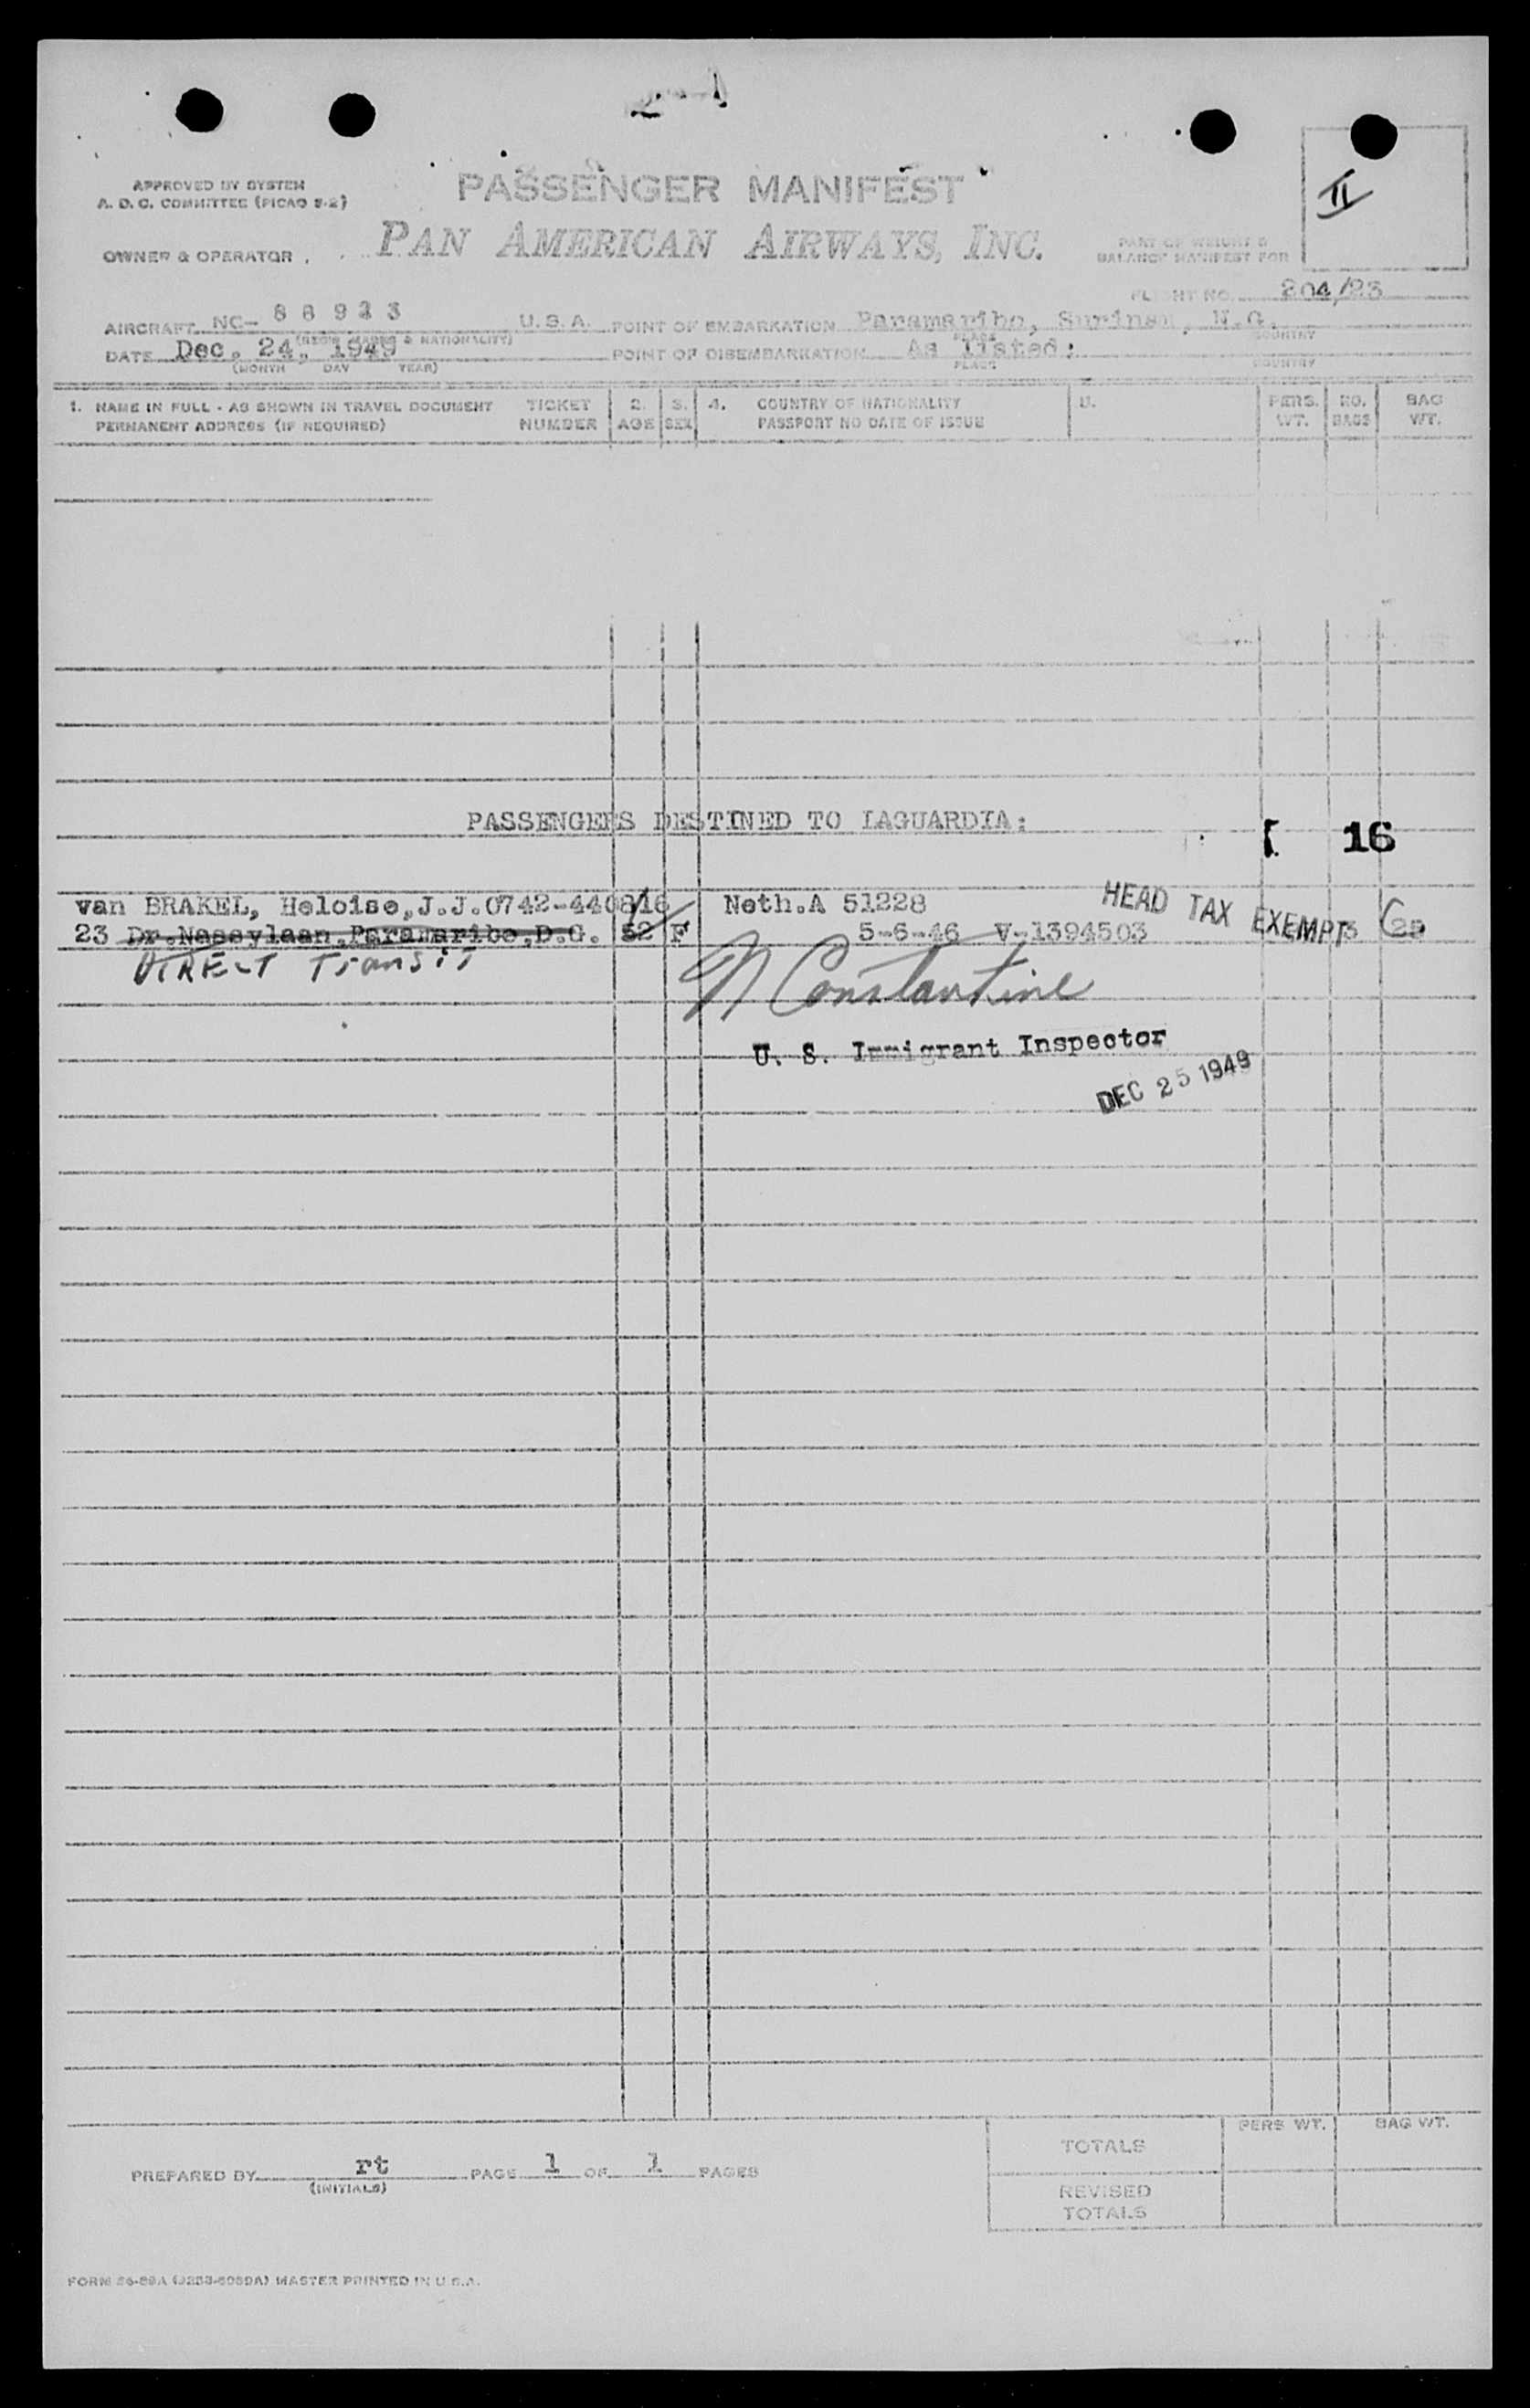 APPROVED BY SYSTEM
A. D. C. COMMITTEE (PICAO 9-2)
PASSENGER MANIFEST
II
OWNER & OPERATOR
PAN AMERICAN AIRWAYS, INC.
PART OF WEIGHT &
BALANCE MANIFEST FOR
FLIGHT NO. 204/23
AIRCRAFT NC- 88923 U.S.A. POINT OF EMBARKATION Paramaribo, Surinam, N.G.
(REG'N MARKS & NATIONALITY) PLACE COUNTRY
DATE Dec. 24, 1949 POINT OF DISEMBARKATION As listed:
(MONTH DAY YEAR) PLACE COUNTRY
1. NAME IN FULL - AS SHOWN IN TRAVEL DOCUMENT TICKET 2. 3. 4. COUNTRY OF NATIONALITY PERS. NO. BAG
PERMANENT ADDRESS (IF REQUIRED) NUMBER AGE SEX PASSPORT NO DATE OF ISSUE WT. BAGS WT.
PASSENGERS DESTINED TO LAGUARDIA:
16
van BRAKEL, Heloise,J.J.0742-440816 Neth.A 51228 HEAD TAX EXEMPT
23 Dr.Nassylaan,Paramaribo,D.G. 52 F 5-6-46 V-1394503 3
DIRECT Transit
N Constantine
U. S. Immigrant Inspector
DEC 25 1949
PERS WT. BAG WT.
TOTALS
PREPARED BY rt PAGE 1 OF 1 PAGES
(INITIALS)
REVISED
TOTALS
MASTER PRINTED IN U.S.A.